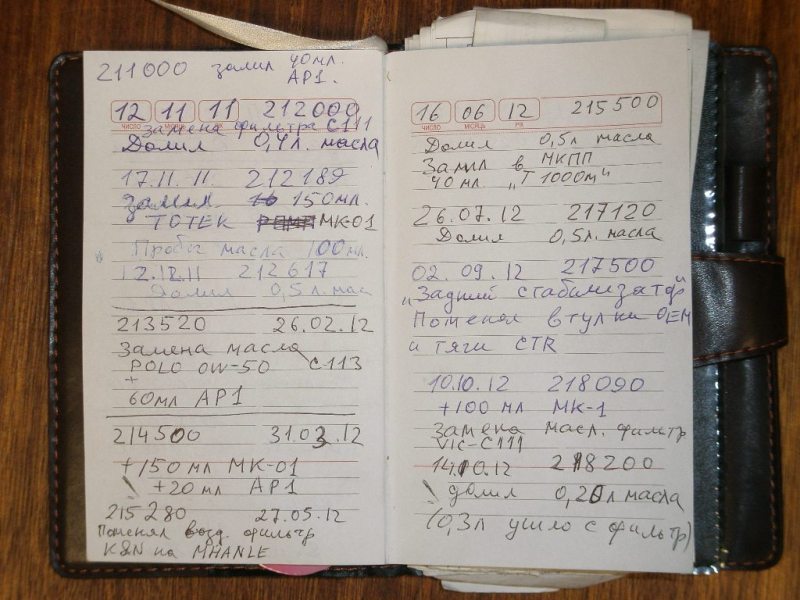 211000 залил 40мл.
АР1.
12 11 11 212000
число
замена фильтра С111
Долил 0,4л. масла
17.11.11 212189
залил 150мл.
ТОТЕК МК-01
Пробы масла 100мл.
12.12.11 212617
Долил 0,5л. мас
213520 26.02.12
Замена масла
POLO 0W-50 С113
+
60мл АР1
214500 31.03.12
+150 мл МК-01
+20 мл АР1
215280 27.05.12
Поменял возд. фильтр
K&N на MHANLE
16 06 12 215500
число месяц год
Долил 0,5л масла
Залил в МКПП
40 мл. „Т 1000м"
26.07.12 217120
Долил 0,5л. масла
02.09.12 217500
„Задний стабилизатор"
Поменял втулки ОЕМ
и тяги CTR
10.10.12 218090
+100 мл МК-1
Замена масл. фильтр
VIC-C111
14.10.12 218200
долил 0,20л масла
(0,3л ушло с фильтр)